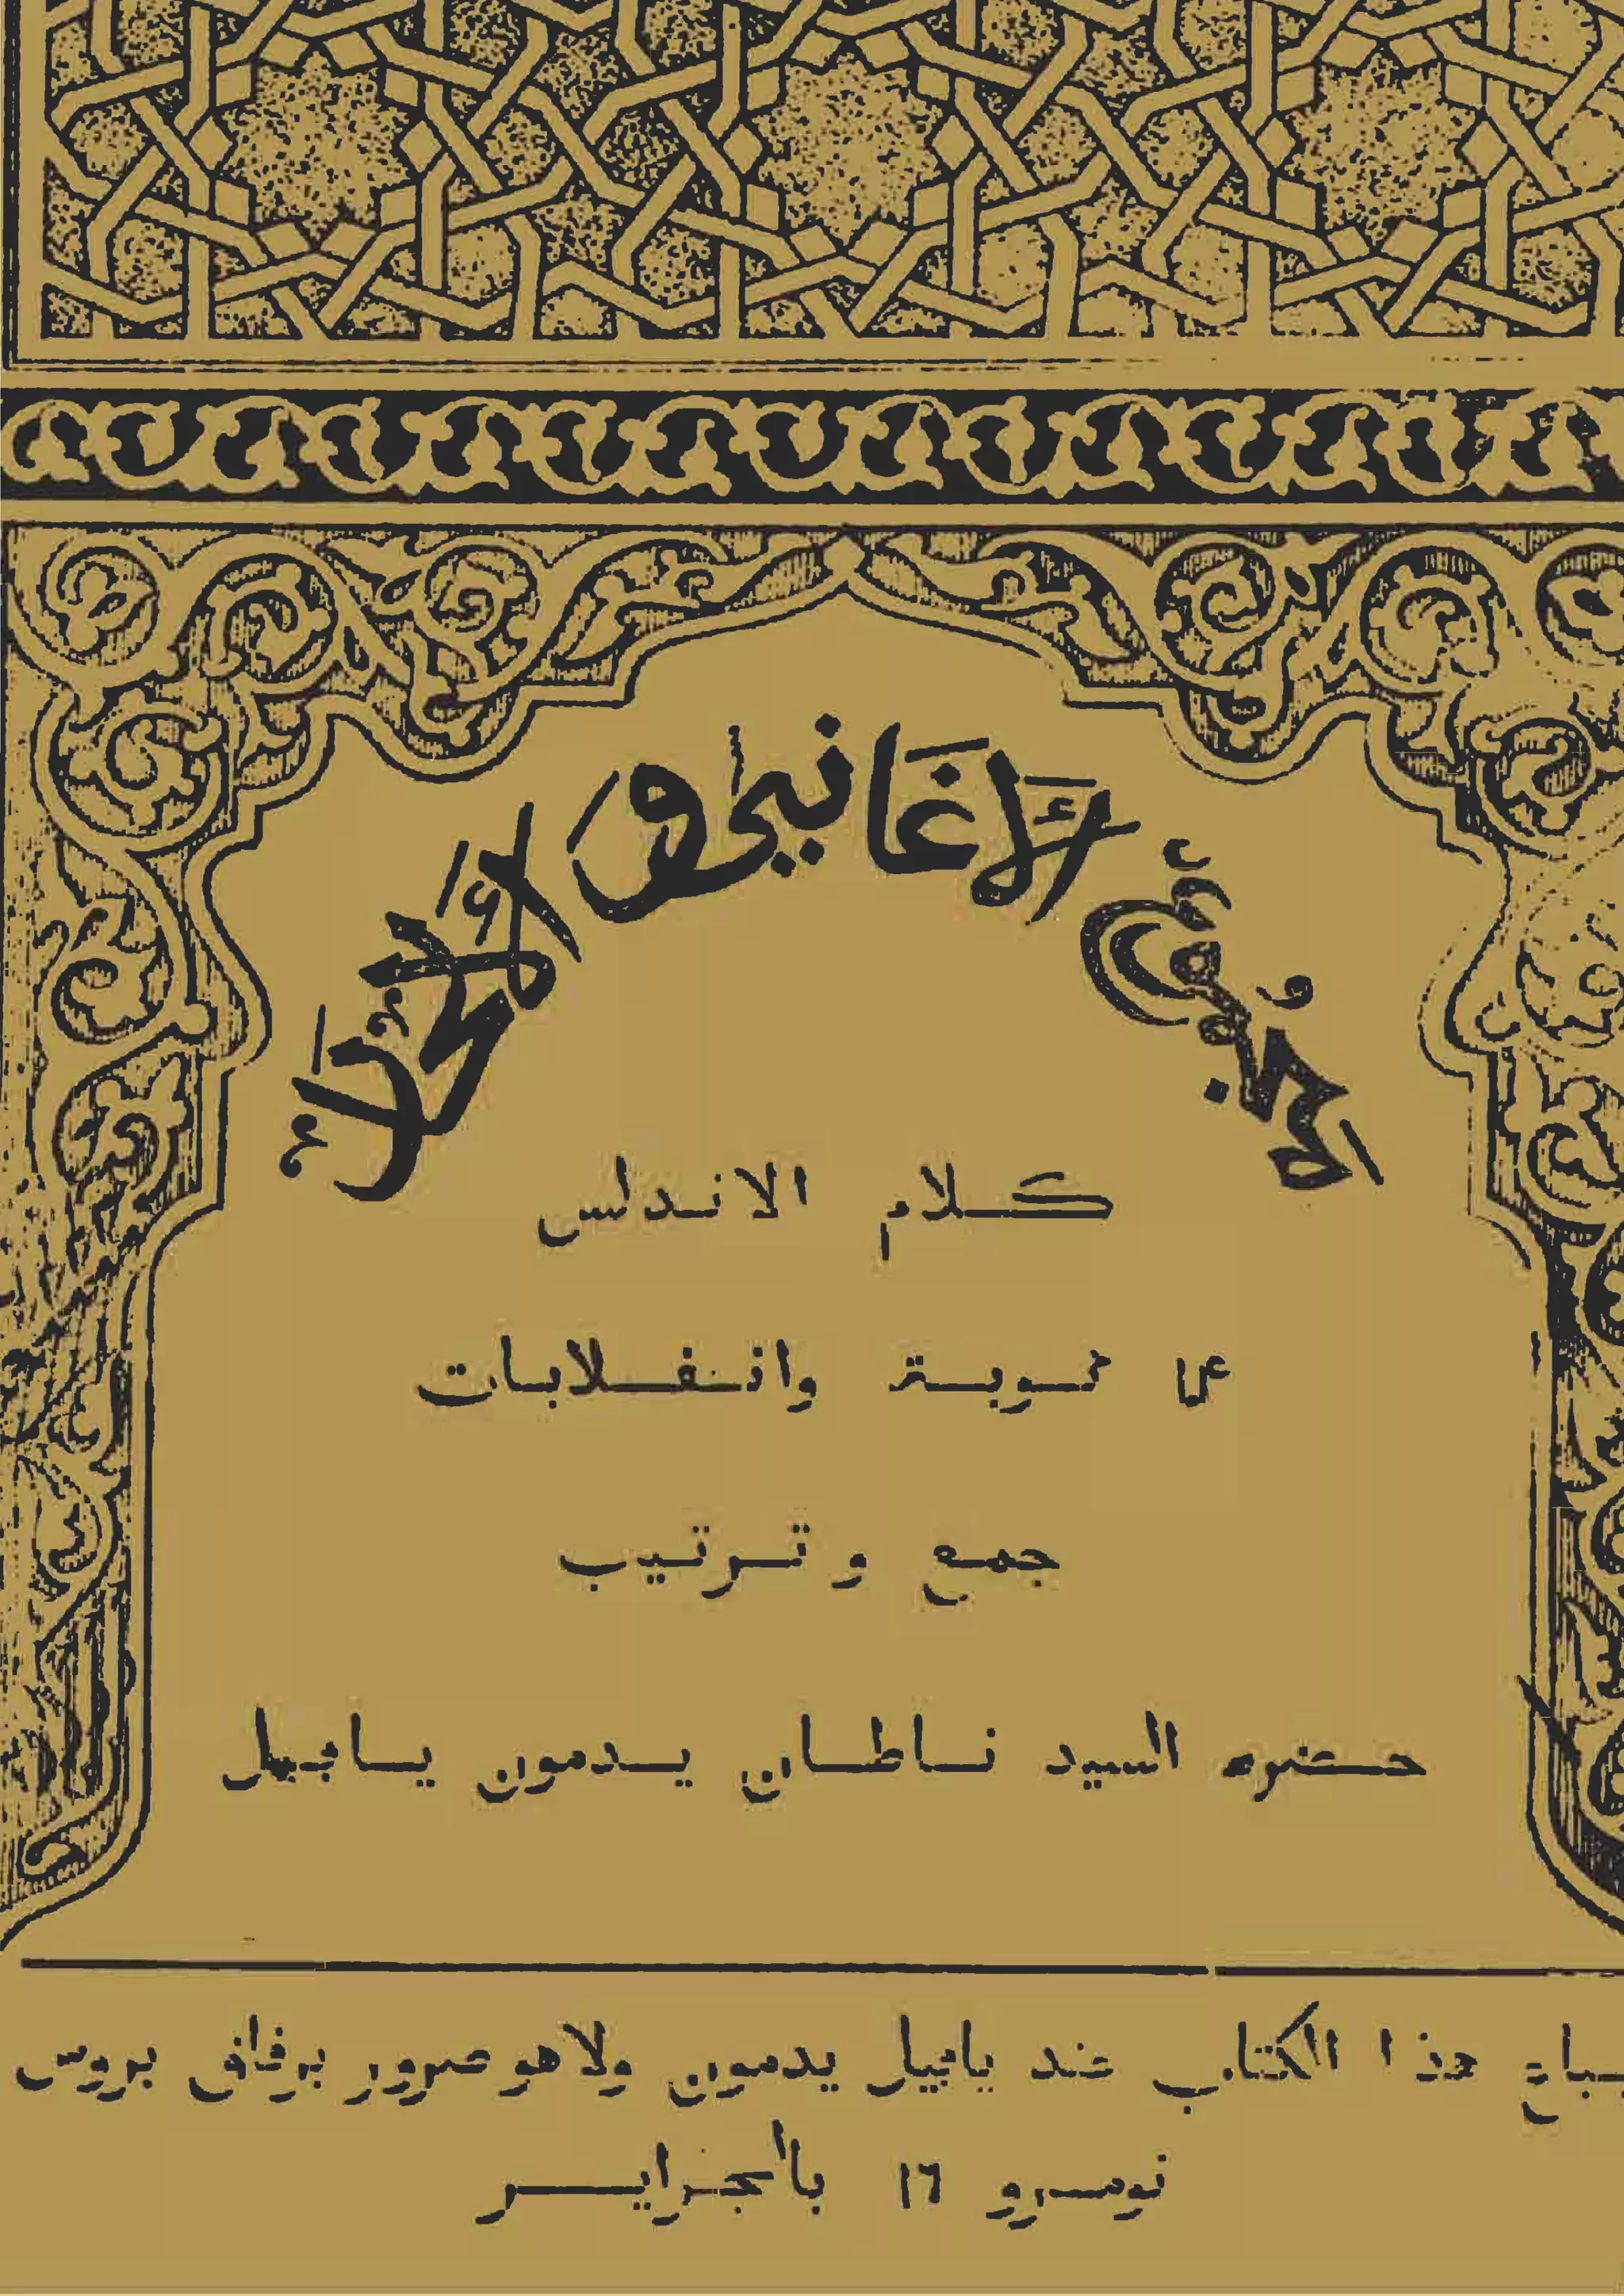 مجموع الأغاني والألحان
كلام الاندلس
نوبة وانقلابات
جمع و ترتيب
حضرة السيد ناطان يدمون يافيل
يباع هذا الكتاب عند يافيل يدمون ولا هو صرور بروس
نومرو ١٦ بالجزاير